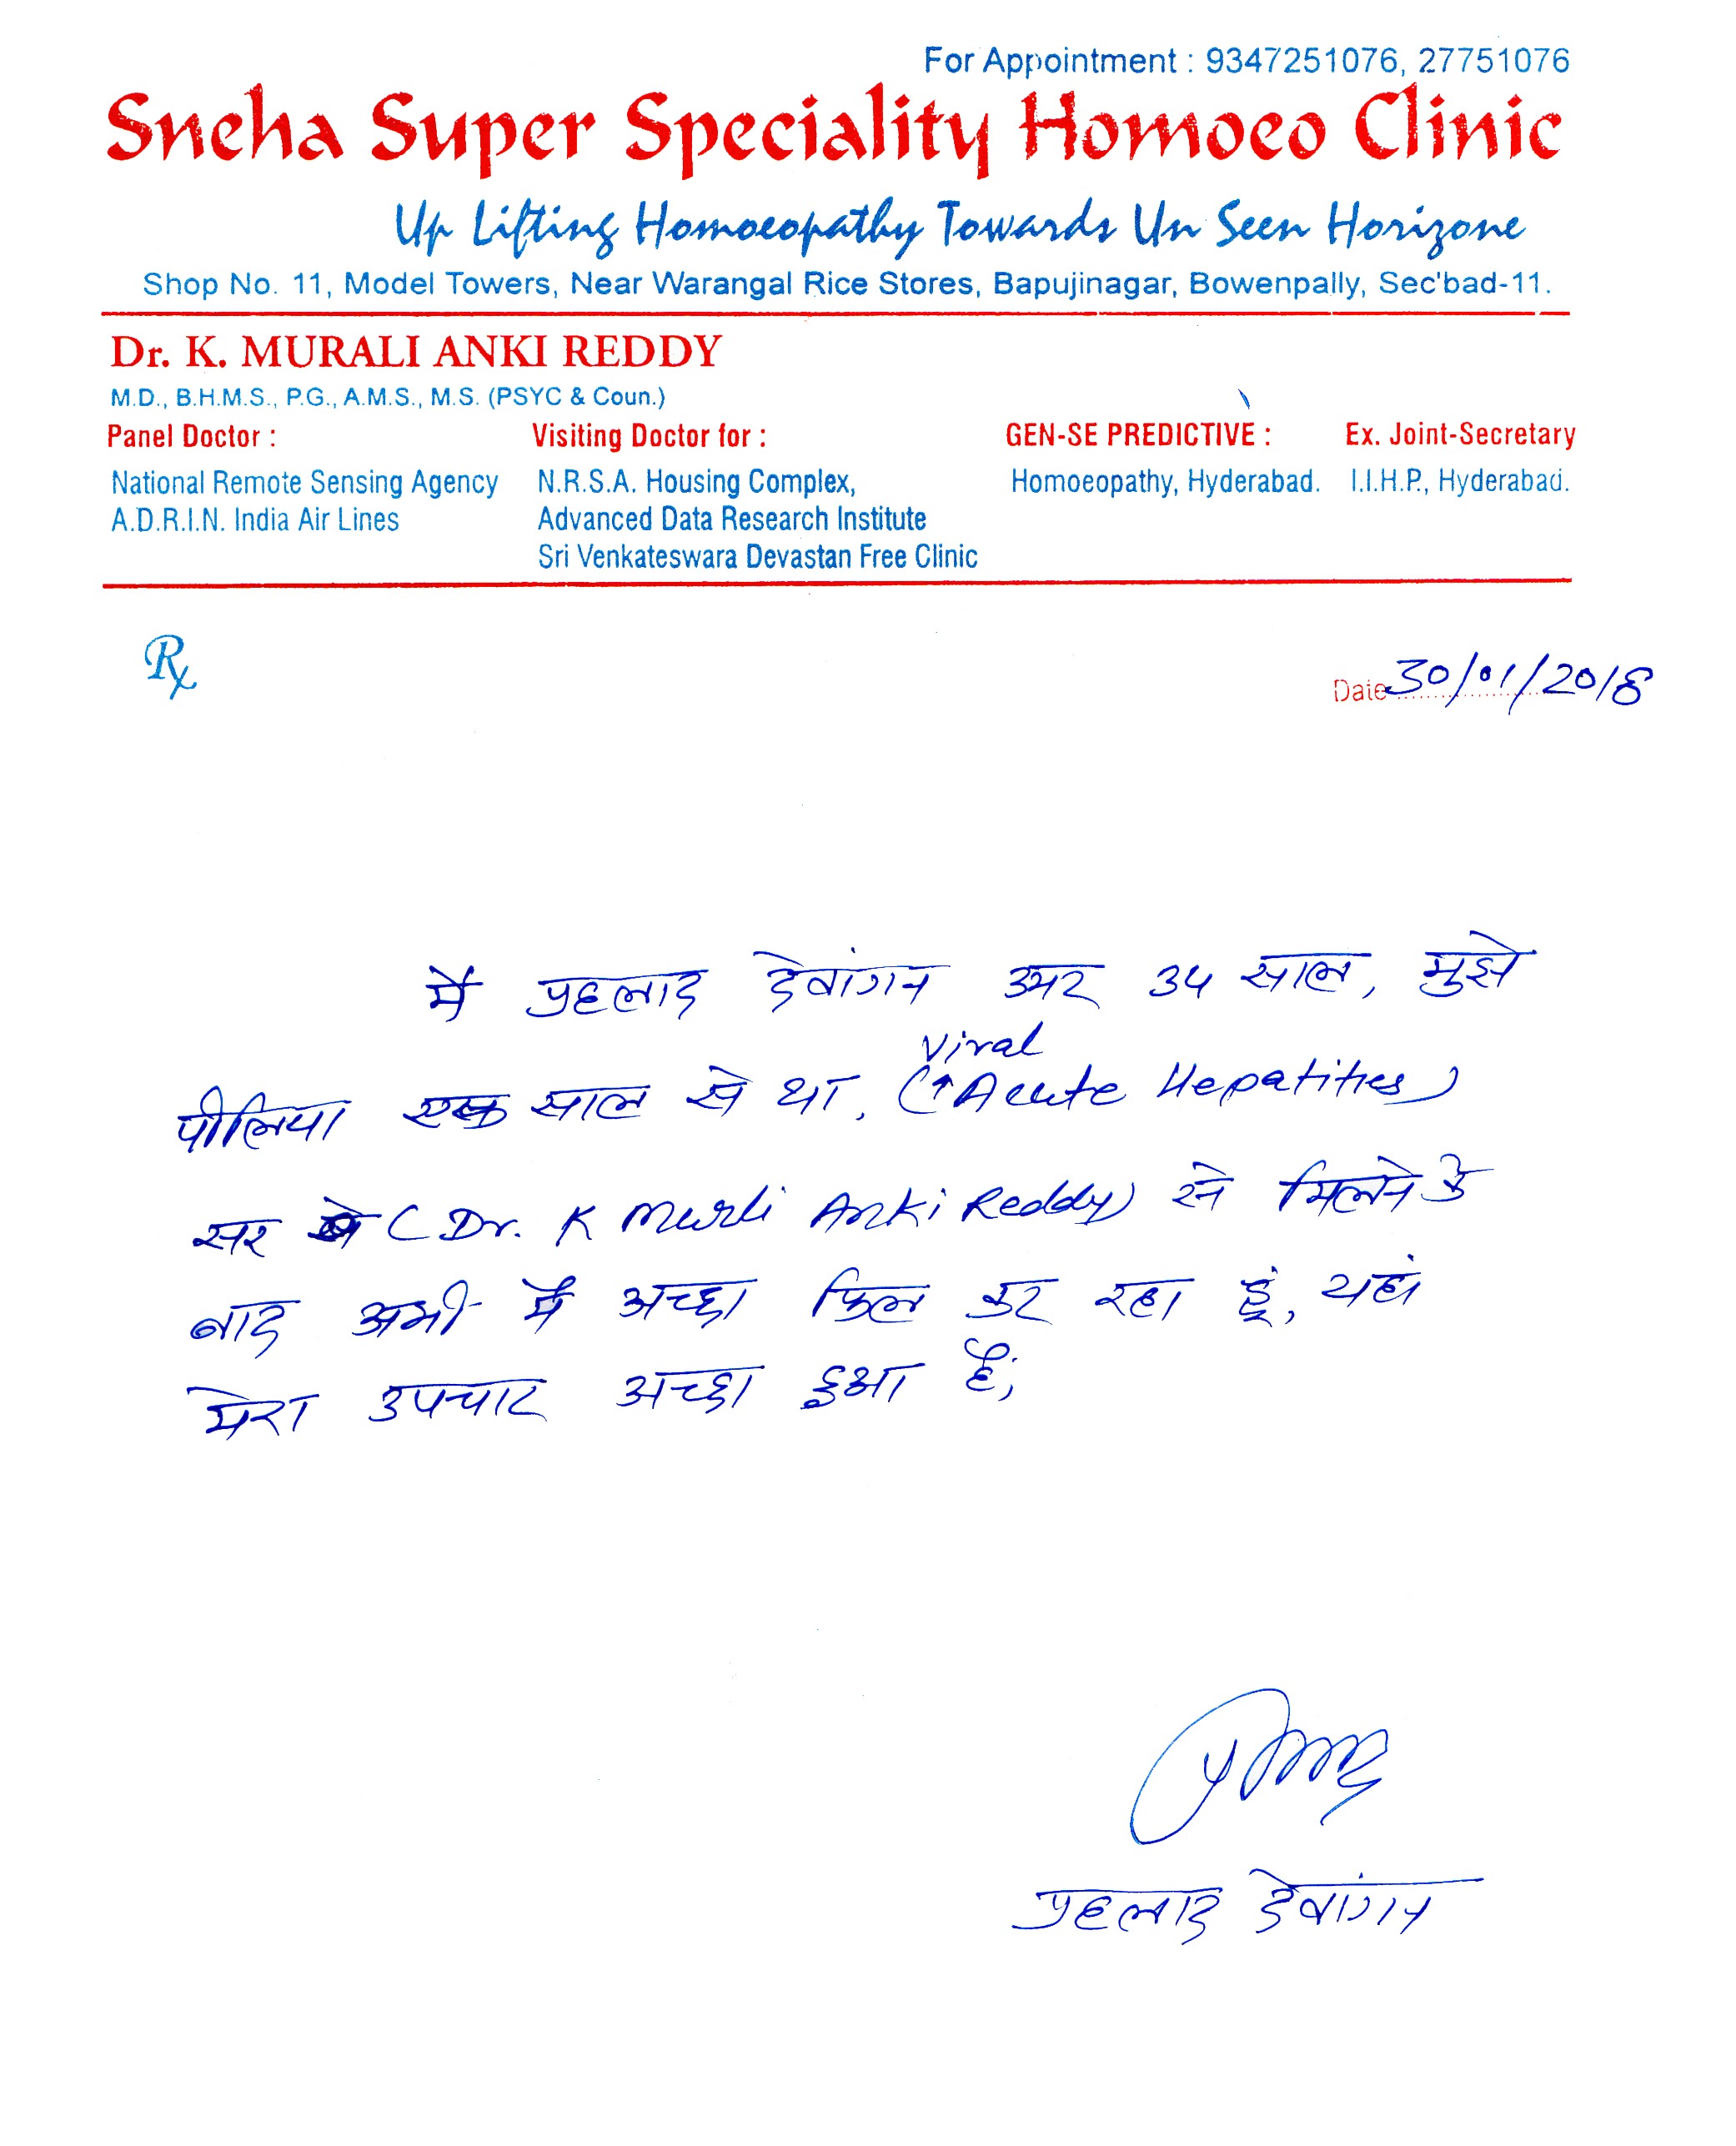 For Appointment : 9347251076, 27751076
Sneha Super Speciality Homoeo Clinic
Up Lifting Homoeopathy Towards Un Seen Horizone
Shop No. 11, Model Towers, Near Warangal Rice Stores, Bapujinagar, Bowenpally, Sec'bad-11.
Dr. K. MURALI ANKI REDDY
M.D., B.H.M.S., P.G., A.M.S., M.S. (PSYC & Coun.)
Panel Doctor : Visiting Doctor for : GEN-SE PREDICTIVE : Ex. Joint-Secretary
National Remote Sensing Agency N.R.S.A. Housing Complex, Homoeopathy, Hyderabad. I.I.H.P., Hyderabad.
A.D.R.I.N. India Air Lines Advanced Data Research Institute
Sri Venkateswara Devastan Free Clinic
Rx
Date 30/01/2018
मैं प्रहलाद देवांगन उमर 34 साल, मुझे
viral
पीलिया एक साल से था, (↑Acute Hepatities)
सर (Dr. K Murli Anki Reddy) से मिलने के
बाद अभी मैं अच्छा फिल कर रहा हूं, यहां
मेरा उपचार अच्छा हुआ है,
प्रहलाद देवांगन